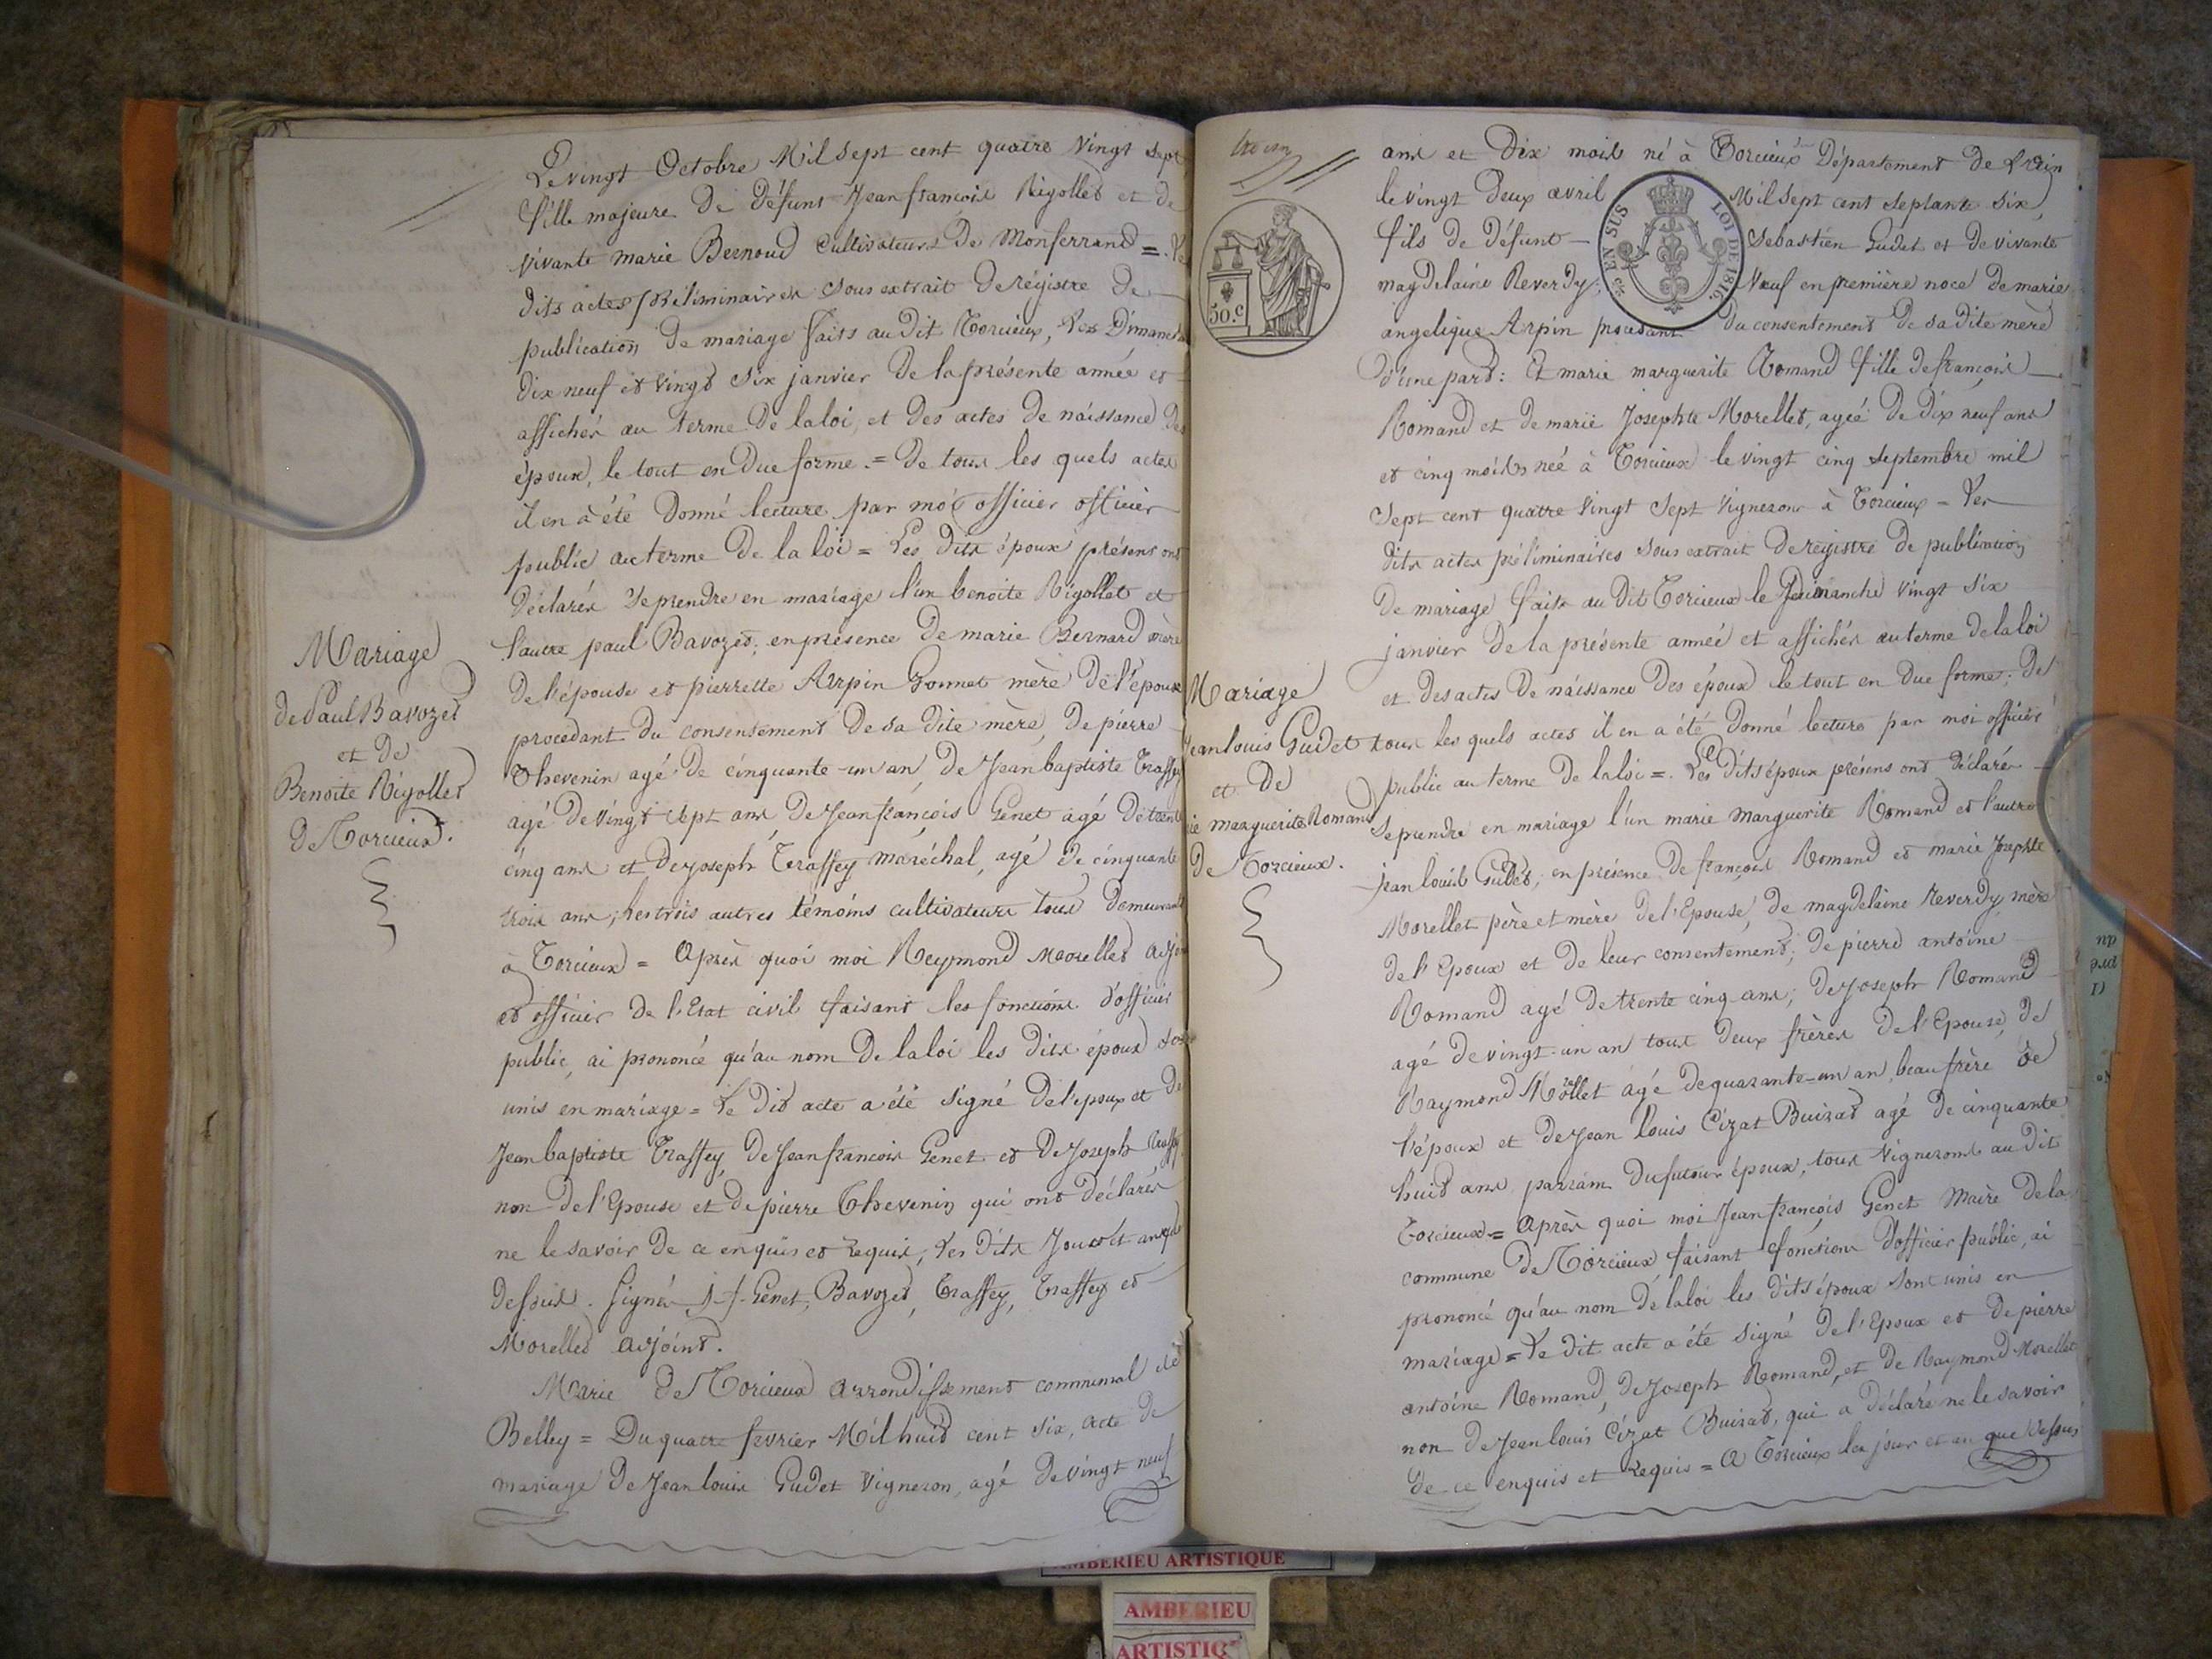 Le vingt Octobre Mil sept cent quatre vingt sept
fille majeure de défunt Jean françois Rigollet et de
vivante marie Bernoud Cultivateurs de Monferrand =
dits actes préliminaires sous extrait de régistre de
publication de mariage faits au dit Torcieux, les Dimanches
dix neuf et vingt six janvier de la présente année et
affichés au terme de la loi, et des actes de náissance des
époux, le tout en due forme = de tous les quels actes
il en à été donné lecture par moi officier officier
public au terme de la loi = Les dits époux présens ont
déclarés se prendre en mariage l'un benoite Rigollet et
l'autre paul Bavozet; en présence de marie Bernard mère
de l'épouse et pierrette Arpin Gonnet mère de l'époux
procedant du consentement de sa dite mère, de pierre
Thevenin agé de cinquante-un an de Jean baptiste Traffey
agé de vingt sept ans, de Jean françois Genet agé de trente
cinq ans et de joseph Traffey maréchal, agé de cinquante
trois ans; les trois autres témoins cultivateurs tous demeurants
à Torcieux = Après quoi moi Reymond Morellet adjoint
et officier de l'Etat civil faisant les fonctions d'officier
public, ai prononcé qu'au nom de la loi les dits époux sont
unis en mariage = Le dit acte a été signé de l'epoux et de
Jean baptiste Traffey, de Jean francois Genet et de Joseph Traffey
non de l'Epouse et de pierre Thevenin qui ont déclarés
ne le savoir de ce enquis et requis, les dits Jour et an que
dessus. Signés J. f. Genet, Bavozet, Traffey, Traffey et
Morellet adjoint.
Marie de Torcieux arrondissement communal de
Belley = Du quatre fevrier Mil huit cent six, acte de
mariage de Jean louis Gudet vigneron, agé de vingt neuf
Mariage
de Paul Bavozet
et de
Benoite Rigollet
de Torcieux.
50.c
EN SUS
LOI DE 1816.
ans et dix mois né à Torcieux Département de L'ain
le vingt deux avril Mil sept cent septante six,
fils de défunt - Sebastien Gudet et de vivante
magdelaine Reverdy, Veuf en première noce de marie
angelique Arpin procédant du consentement de sa dite mère
d'une part: Et marie marguerite Romand fille de françois
Romand et de marie Josephte Morellet, agée de dix neuf ans
et cinq mois née à Torcieux le vingt cinq septembre mil
sept cent quatre vingt sept vignerons à Torcieux = Les
dits actes préliminaires sous extrait de régistre de publication
de mariage faits au dit Torcieux le dimanche vingt six
janvier de la présente année et affichés au terme de la loi
et des actes de náissance des époux le tout en due forme; de
tous les quels actes il en a été donné lecture par moi officier
public au terme de la loi =. Les dits époux présens ont déclarés
se prendre en mariage l'un marie marguerite Romand et l'autre
jean louis Gudet, en présence de françois Romand et marie Josephte
Morellet père et mère de l'Epouse, de magdelaine Reverdy, mère
de l'Epoux et de leur consentement; de pierre antoine
Romand agé de trente cinq ans; de Joseph Romand
agé de vingt-un an tous deux frères de l'Epouse, de
Raymond Morellet agé de quarante-un an, beau frère de
l'époux et de Jean louis Cizat Buizat agé de cinquante
huit ans parrain du futur époux, tous vignerons au dit
Torcieux = Après quoi moi Jean françois Genet Maire de la
commune de Torcieux faisant fonctions d'officier public, ai
prononcé qu'au nom de la loi les dits époux sont unis en
mariage = Le dit acte a été signé de l'Epoux et de pierre
antoine Romand, de Joseph Romand, et de Raymond Morellet
non de Jean louis Cizat Buizat, qui a déclaré ne le savoir
de ce enquis et requis = A Torcieux les jour et an que dessus
Mariage
Jean louis Gudet
et de
marguerite Romand
de Torcieux.
AMBERIEU ARTISTIQUE
AMBERIEU
ARTISTIQ